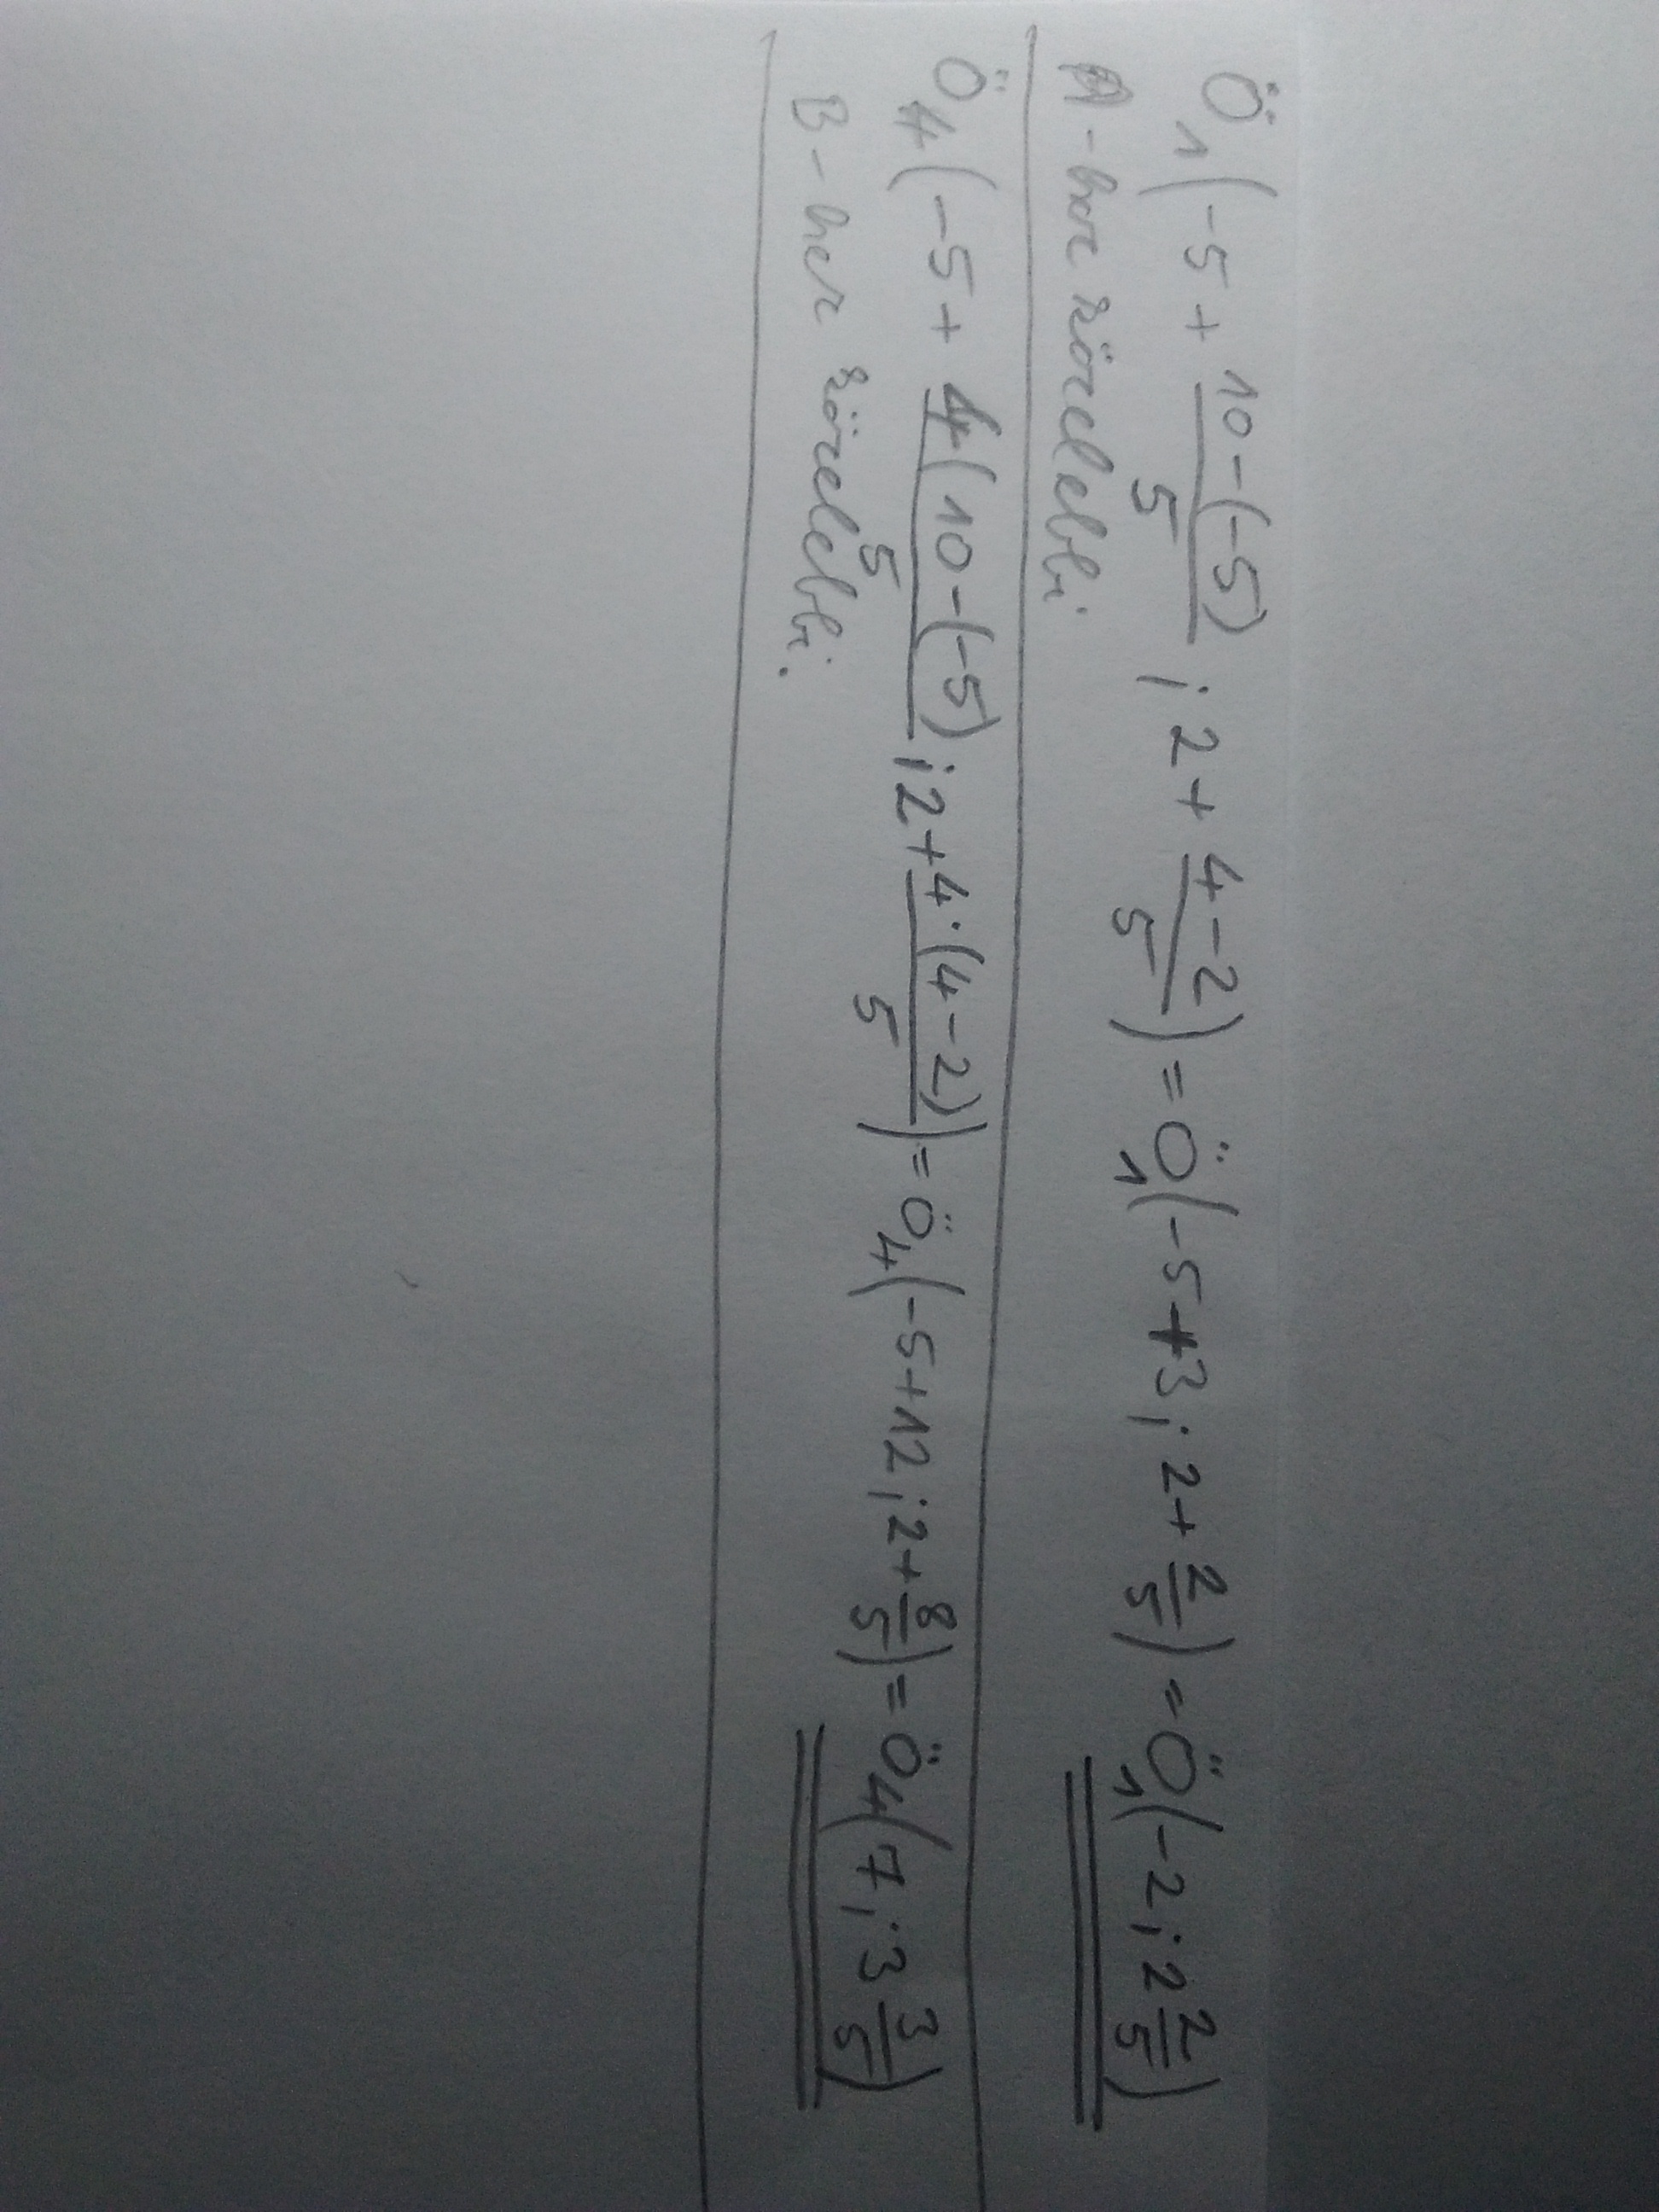 Ö₁(-5 + (10-(-5))/5 ; 2 + (4-2)/5) = Ö₁(-5+3 ; 2 + 2/5) = Ö₁(-2 ; 2 2/5)
A-hoz közelebbi
Ö₄(-5 + 4(10-(-5))/5 ; 2 + 4·(4-2)/5) = Ö₄(-5+12 ; 2 + 8/5) = Ö₄(7 ; 3 3/5)
B-hez közelebbi.